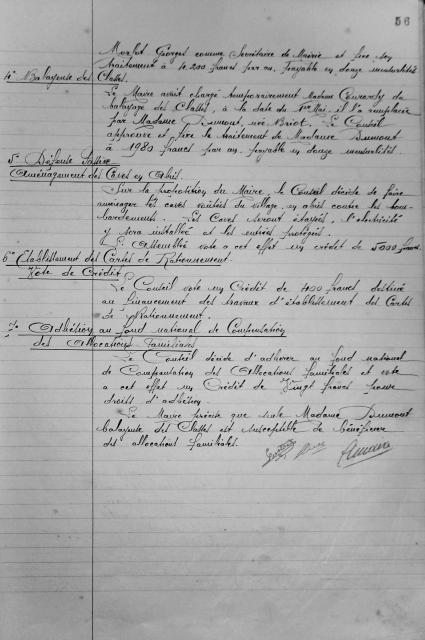 56
Georges comme Secrétaire de Mairie et fixe son
traitement à 4.200 francs par an, payable en douze mensualités
4° Balayeuse des Classes.
Le Maire avait chargé temporairement Madame du
balayage des Classes, à la date du 1er Mai, il l'a remplacée
par Madame Dumont, née Briot. Le Conseil
approuve et fixe le traitement de Madame Dumont
à 1980 francs par an, payable en douze mensualités.
5° Défense Passive
Aménagement des Caves en Abri.
Sur la proposition du Maire, le Conseil décide de faire
aménager les caves voûtées du village, en abri contre les bom-
bardements. Les Caves seront étayées, l'électricité
y sera installée et les entrées protégées.
L'Assemblée vote à cet effet un crédit de 5000 francs.
6° Etablissement des Cartes de Rationnement.
Vote de Crédit
Le Conseil vote un Crédit de 400 francs, destiné
au financement des travaux d'établissement des Cartes
de Rationnement.
7° Adhésion au fond national de Compensation
des Allocations Familiales
Le Conseil décide d'adhérer au fond national
de Compensation des Allocations familiales et vote
à cet effet un Crédit de Vingt francs pour
droits d'adhésion.
Le Maire précise que seule Madame Dumont
balayeuse des Classes est susceptible de bénéficier
des allocations familiales.